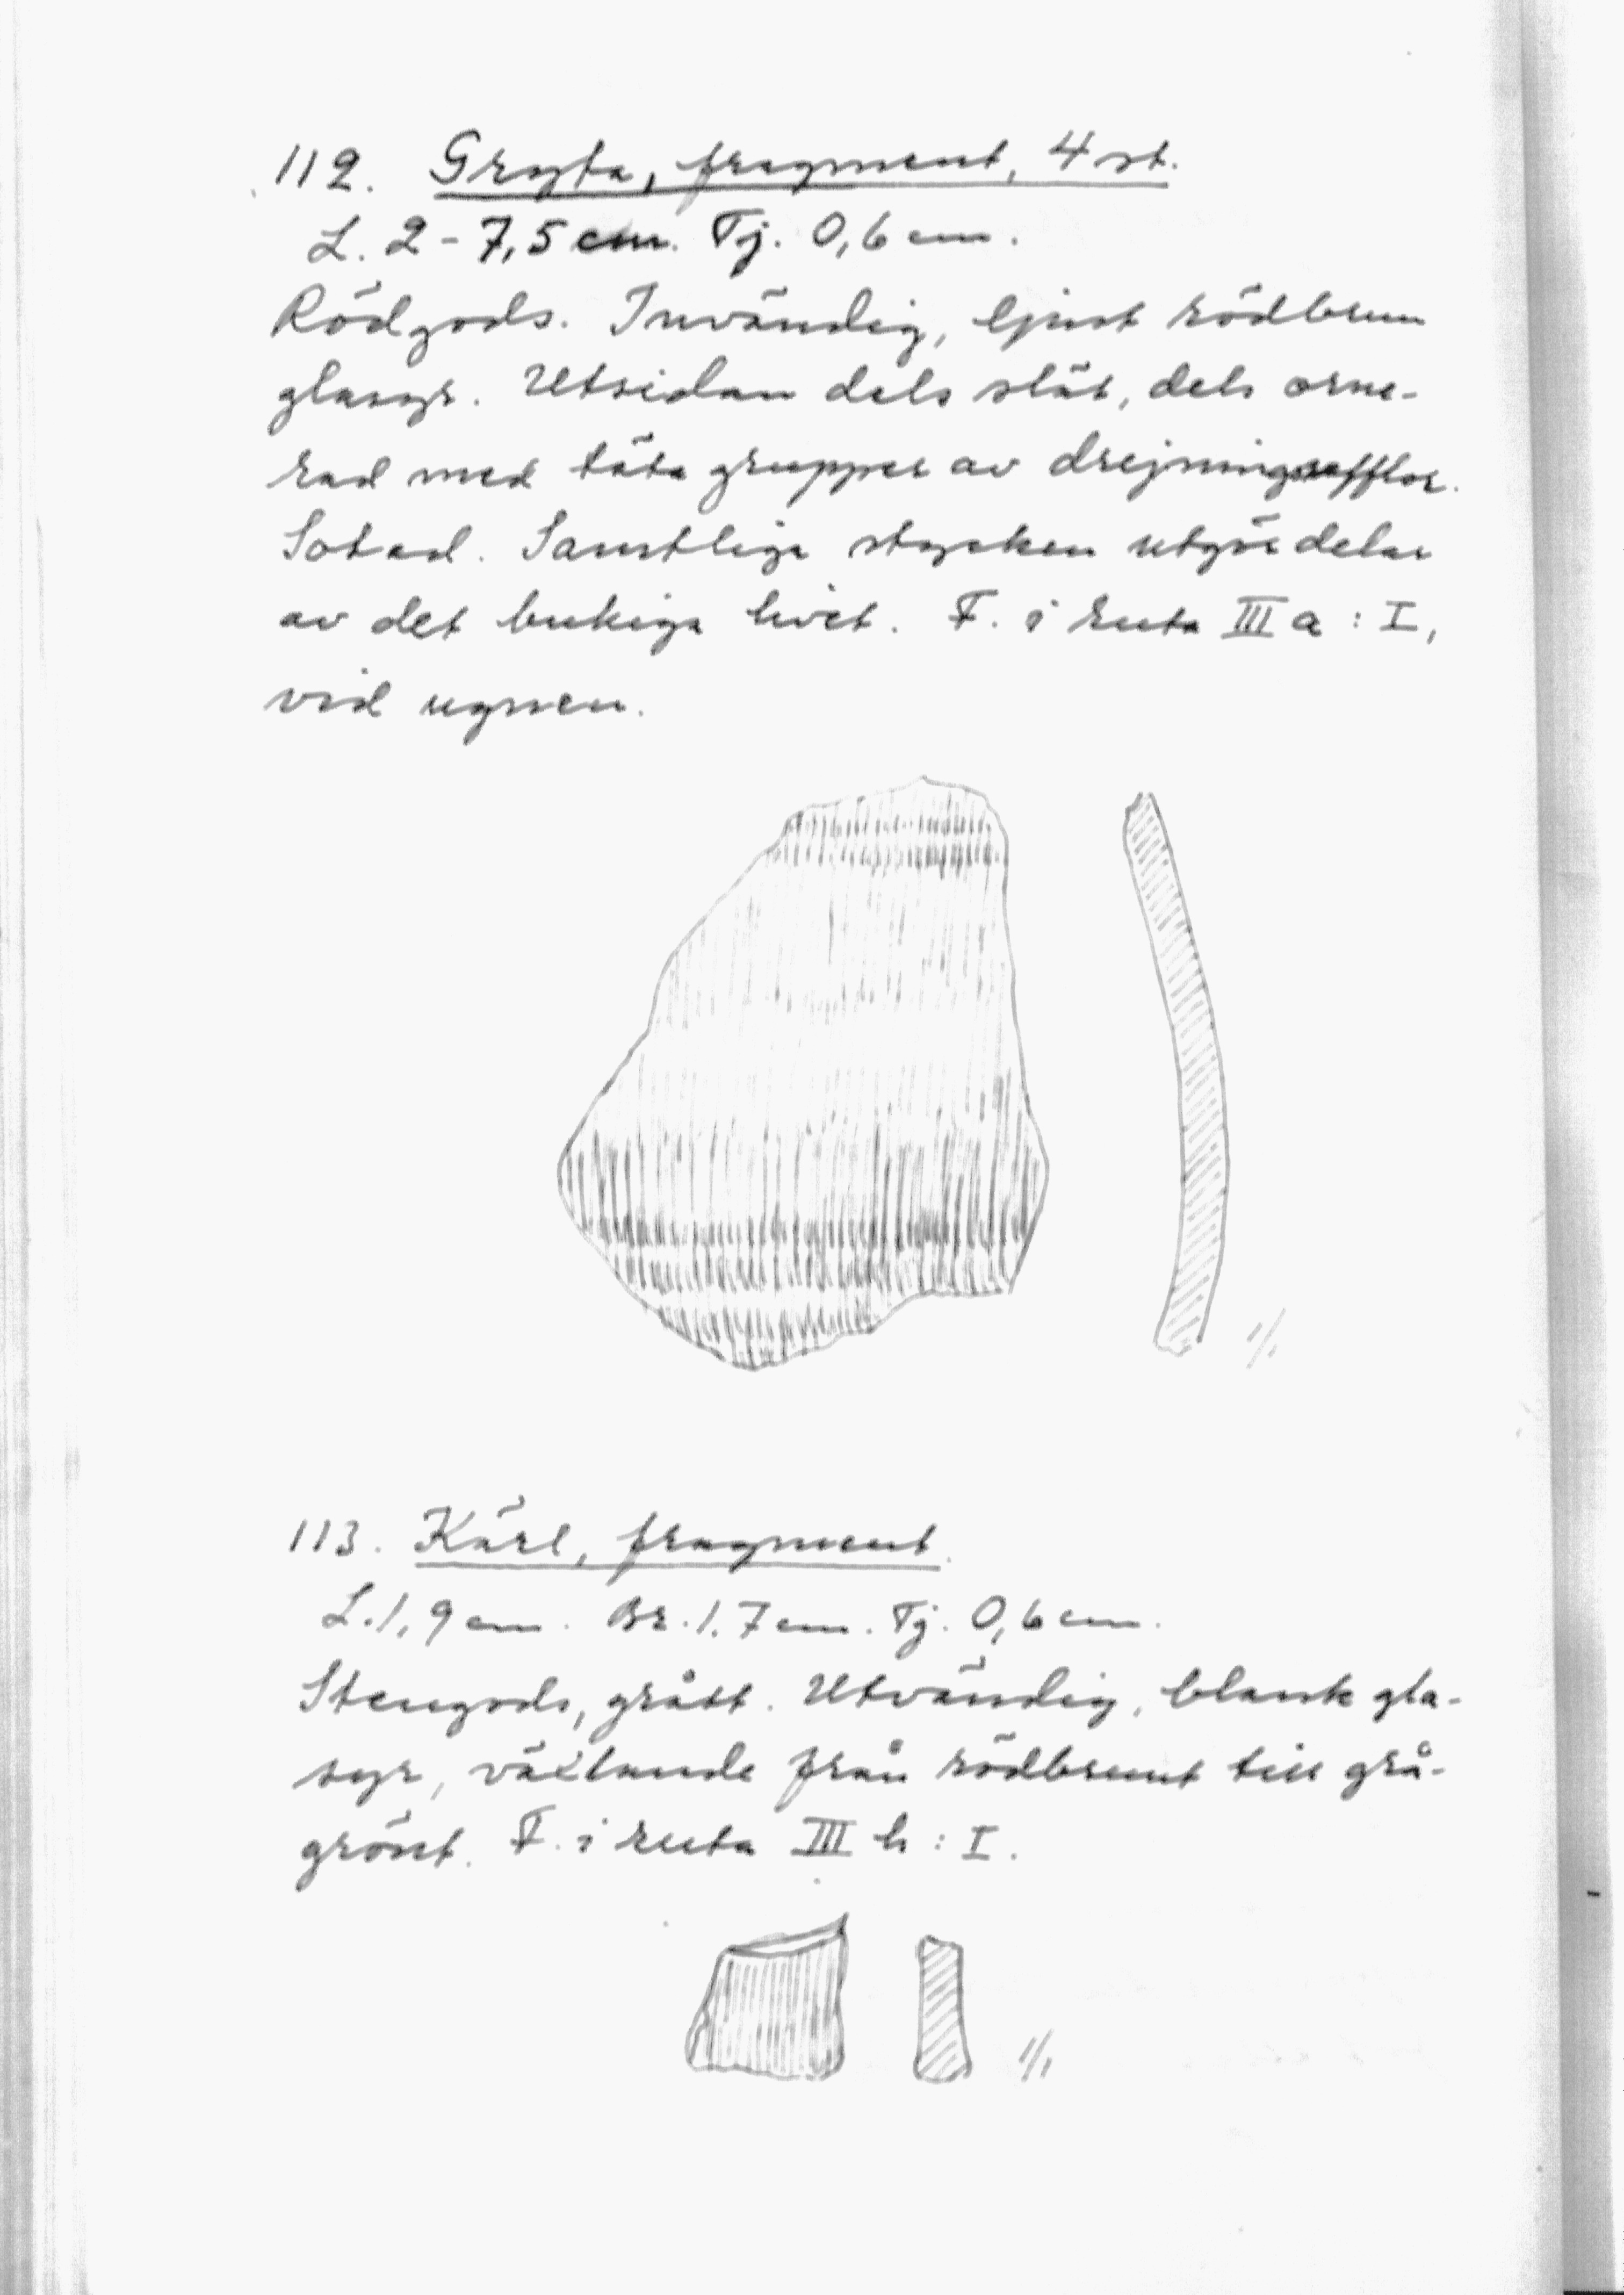 112. Gryta, fragment, 4 st.
L. 2-7,5 cm. Tj. 0,6 cm.
Rödgods. Invändig, ljust rödbrun
glasyr. Utsidan dels slät, dels orne-
rad med täta grupper av drejningsrefflor.
Sotad. Samtliga stycken utgör delar
av det bukiga livet. F. i ruta III a : I,
vid ugnen.
1/1
113. Kärl, fragment.
L. 1,9 cm. Br. 1,7 cm. Tj. 0,6 cm.
Stengods, grått. Utvändig, blank gla-
syr, växlande från rödbrunt till grå-
grönt. F. i ruta III h : I.
1/1